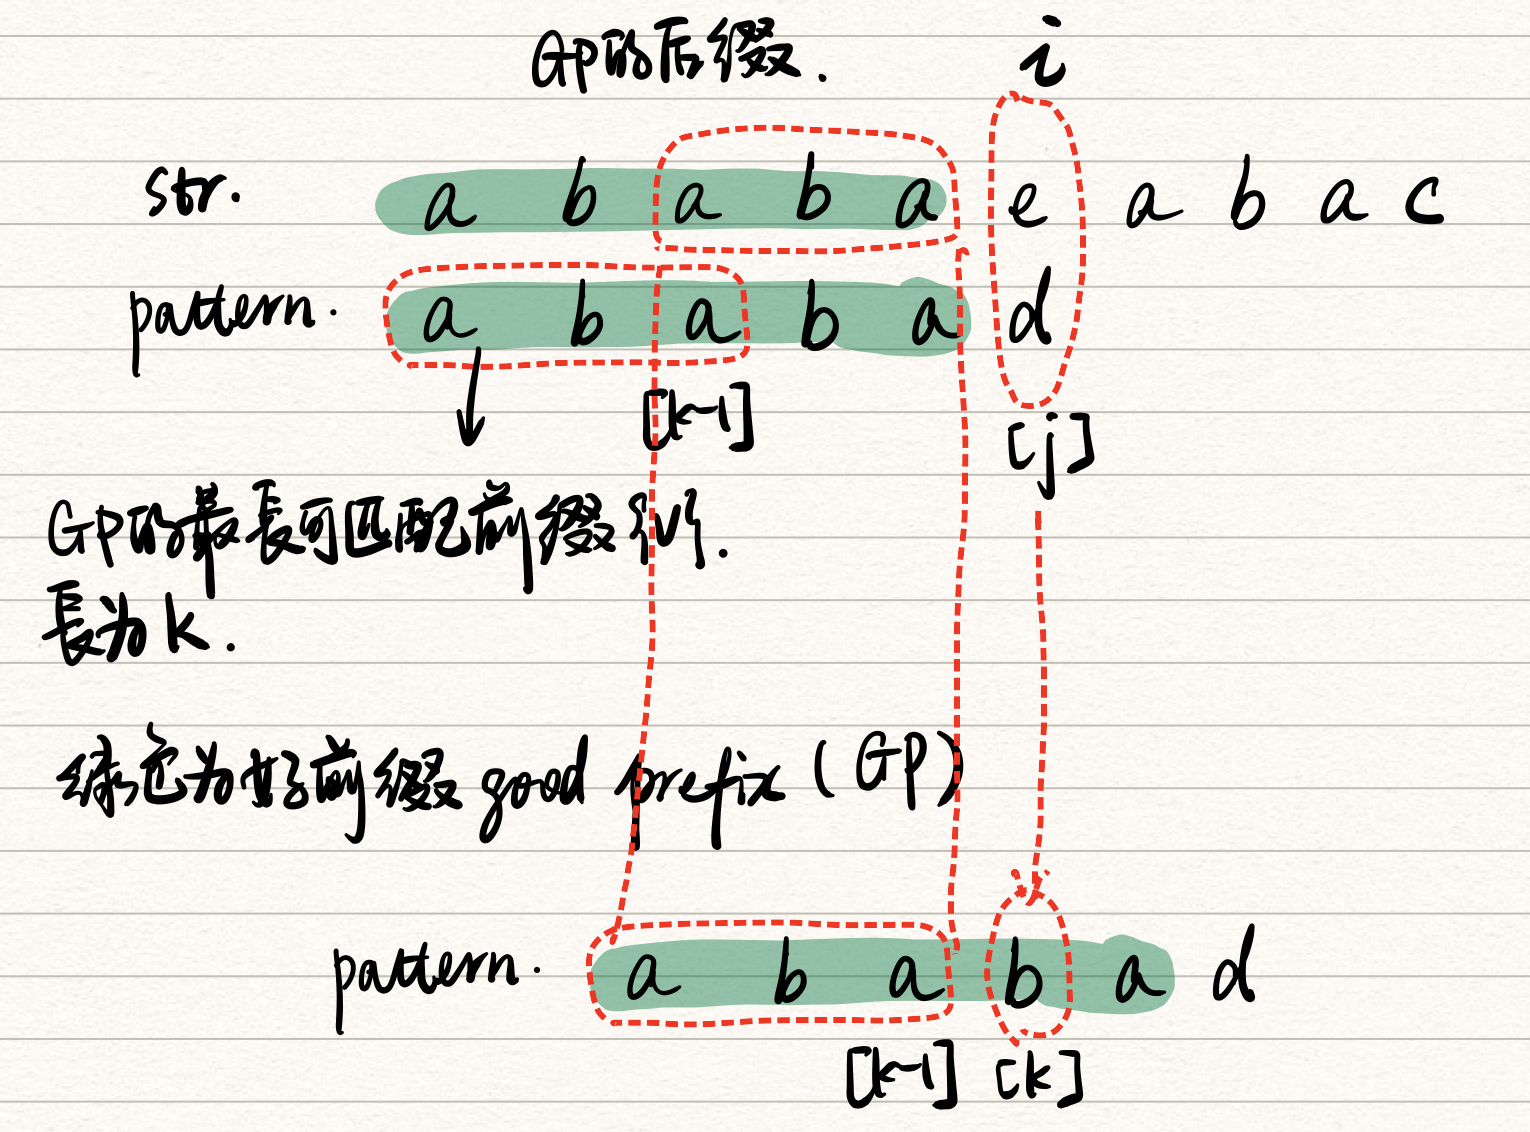 GP的后缀.
i
str. a b a b a e a b a c
pattern. a b a b a d
[k-1] [j]
GP的最長可匹配前缀
長为k.
绿色为好前缀good prefix(GP)
pattern. a b a b a d
[k-1] [k]